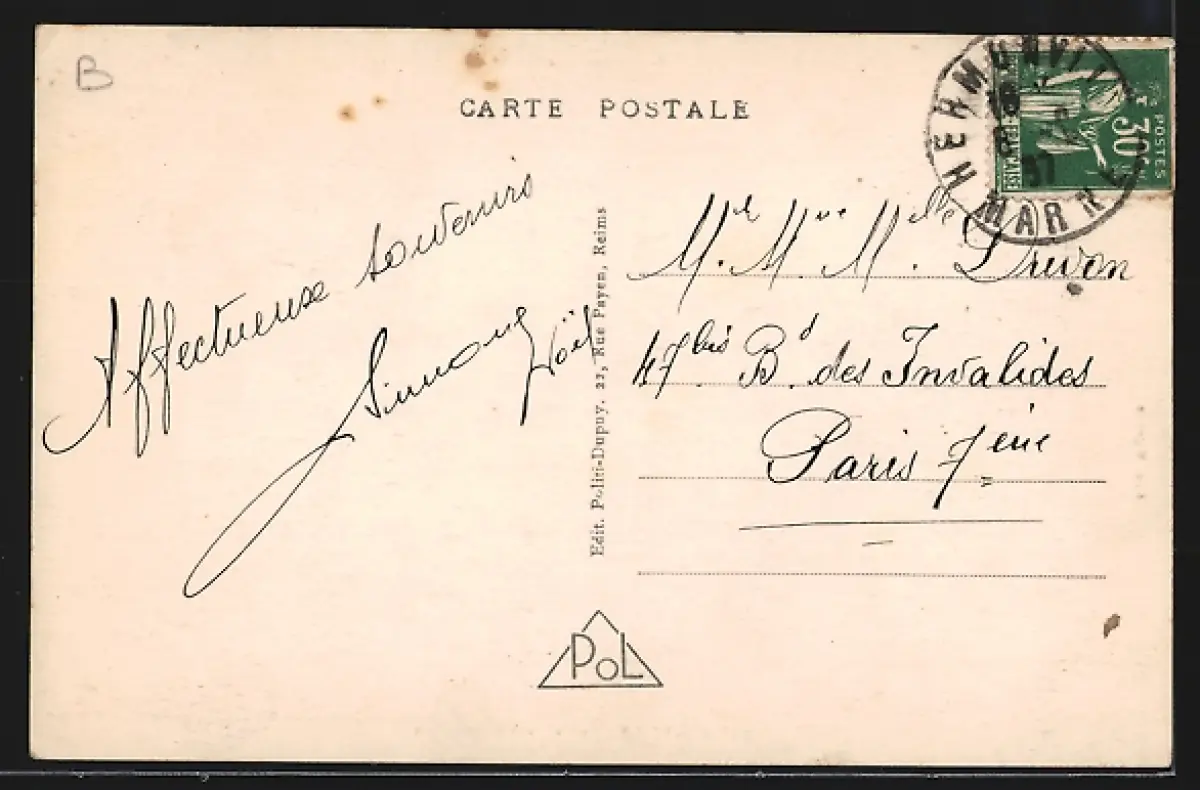 B
CARTE POSTALE
HERMONVILLE
MARNE
37
30c
POSTES
FRANÇAISE
Affectueuse souvenirs
Simone Noël
Edit. Politi-Dupuy, 23, Rue Payen, Reims
Mr Mme Melle Drevon
47bis Bd des Invalides
Paris 7ème
PoL